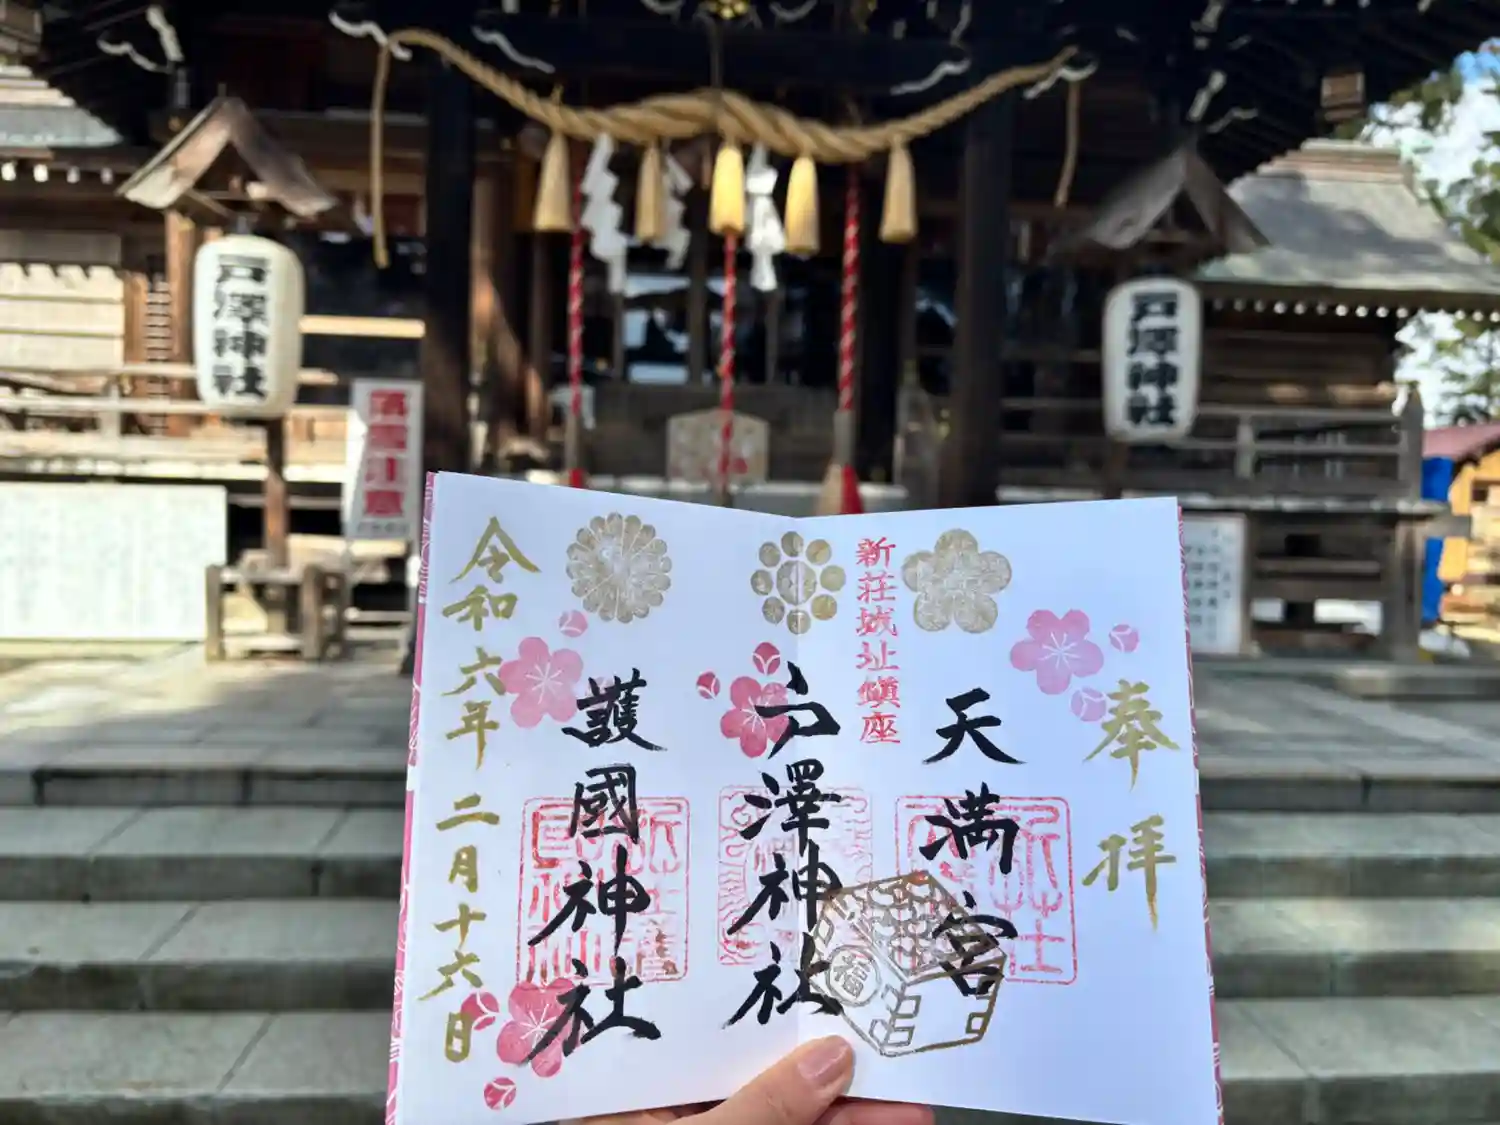 戸澤神社
戸澤神社
落雪注意
奉拝
天満宮
新荘城址鎮座
戸澤神社
護國神社
令和六年二月十六日
福